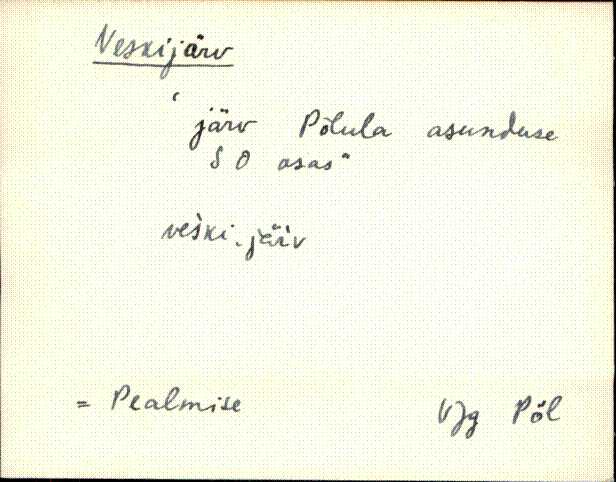 Veskijärv
" järv Põlula asunduse
SO osas"
veski, järv
= Pealmise
VJg Põl